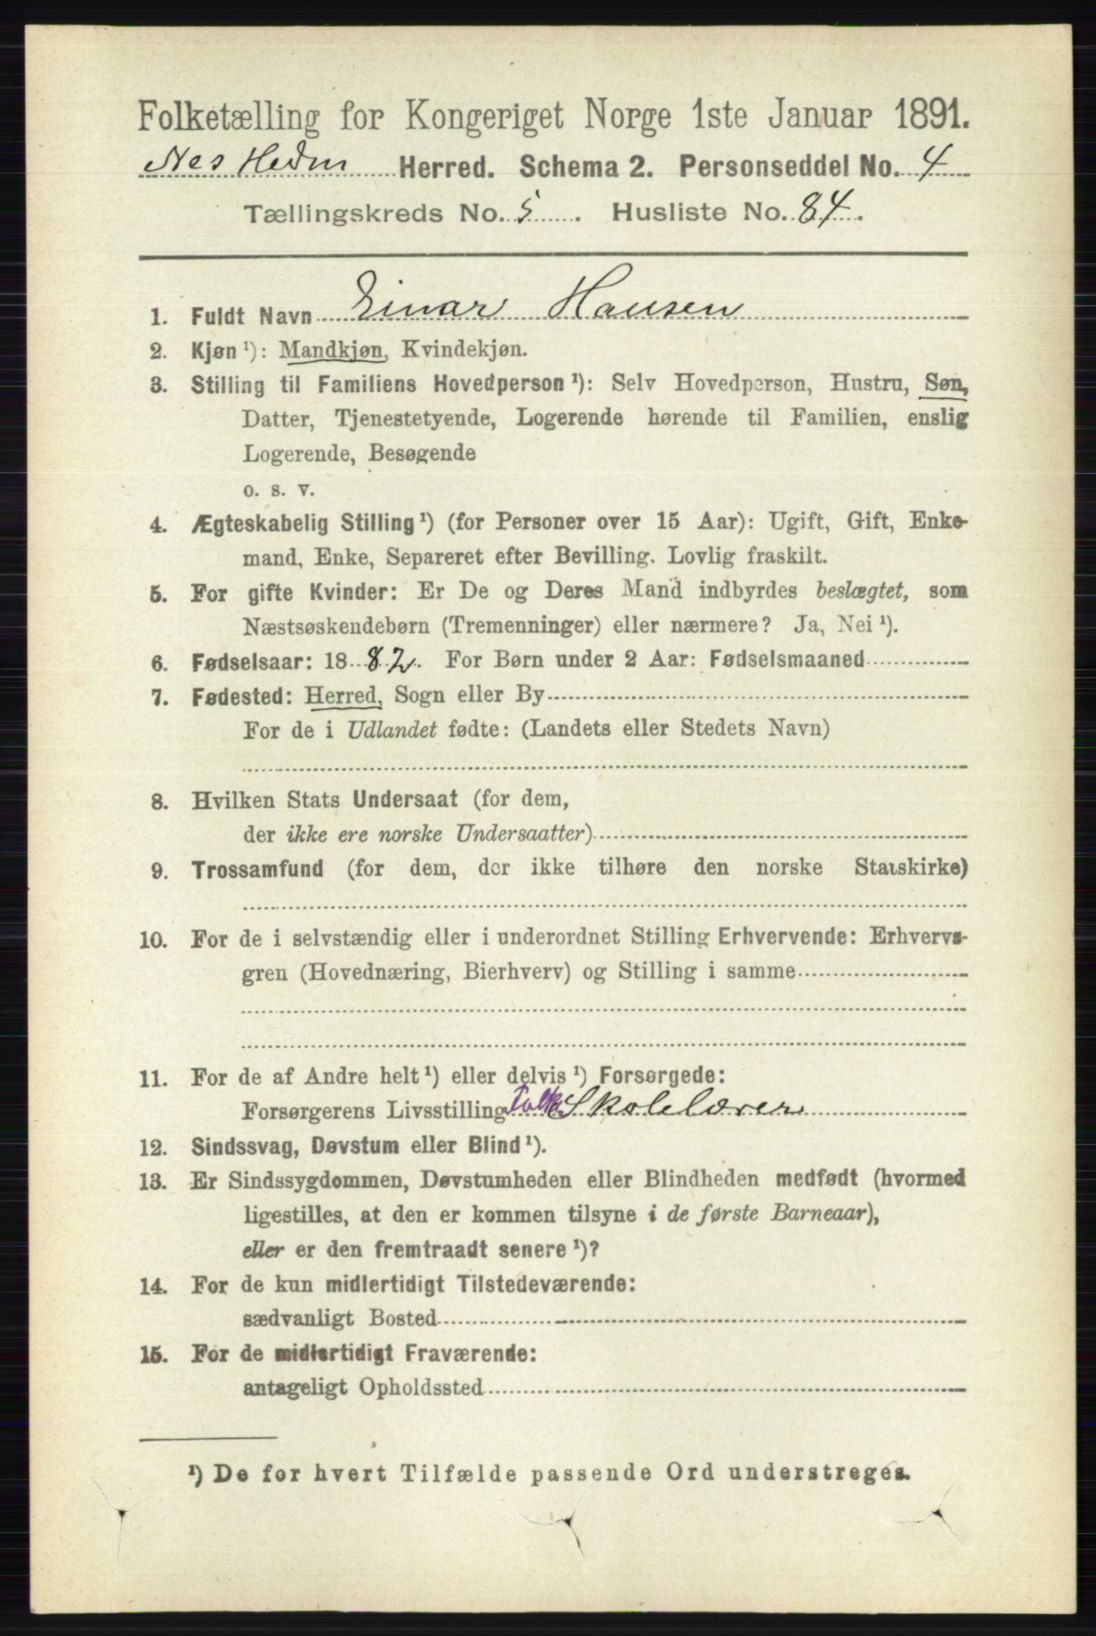 Folketælling for Kongeriget Norge 1ste Januar 1891.
Nes Hedm Herred. Schema 2. Personseddel No. 4
Tællingskreds No. 5. Husliste No. 84.
1. Fuldt Navn Einar Hansen
2. Kjøn ¹): Mandkjøn, Kvindekjøn.
3. Stilling til Familiens Hovedperson ¹): Selv Hovedperson, Hustru, Søn,
Datter, Tjenestetyende, Logerende hørende til Familien, enslig
Logerende, Besøgende
o. s. v.
4. Ægteskabelig Stilling ¹) (for Personer over 15 Aar): Ugift, Gift, Enke-
mand, Enke, Separeret efter Bevilling. Lovlig fraskilt.
5. For gifte Kvinder: Er De og Deres Mand indbyrdes beslægtet, som
Næstsøskendebørn (Tremenninger) eller nærmere? Ja, Nei ¹).
6. Fødselsaar: 1882. For Børn under 2 Aar: Fødselsmaaned
7. Fødested: Herred, Sogn eller By
For de i Udlandet fødte: (Landets eller Stedets Navn)
8. Hvilken Stats Undersaat (for dem,
der ikke ere norske Undersaatter)
9. Trossamfund (for dem, der ikke tilhøre den norske Statskirke)
10. For de i selvstændig eller i underordnet Stilling Erhvervende: Erhvervs-
gren (Hovednæring, Bierhverv) og Stilling i samme
11. For de af Andre helt ¹) eller delvis ¹) Forsørgede:
Forsørgerens Livsstilling Folke Skolelærer
12. Sindssvag, Døvstum eller Blind ¹).
13. Er Sindssygdommen, Døvstumheden eller Blindheden medfødt (hvormed
ligestilles, at den er kommen tilsyne i de første Barneaar),
eller er den fremtraadt senere ¹)?
14. For de kun midlertidigt Tilstedeværende:
sædvanligt Bosted
15. For de midlertidigt Fraværende:
antageligt Opholdssted
¹) De for hvert Tilfælde passende Ord understreges.